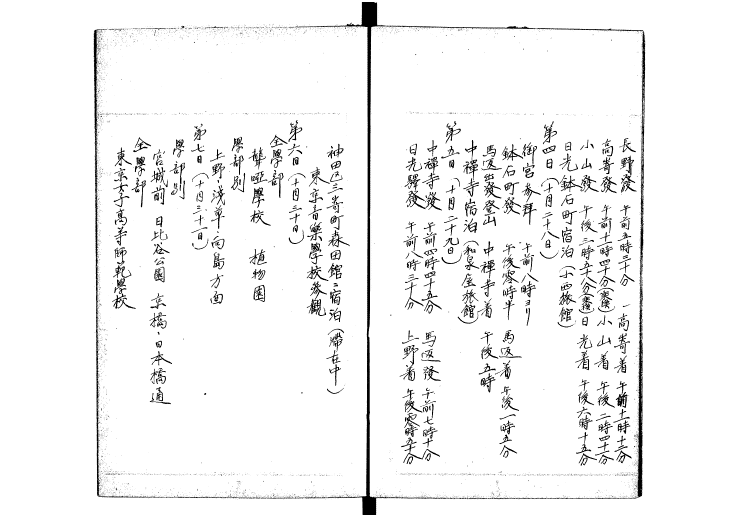 長野發 午前五時三十分 一高崎着 午前十一時十三分
高崎發 午前十一時四十分(乘換)小山着 午後二時四十分
小山發 午後三時五十分(乘換)日光着 午後六時十五分
日光鉢石町宿泊(小西旅館)
第四日(十月二十八日)
御宮参拜 午前八時ヨリ
鉢石町發 午後零時半 馬返着 午後一時五分
馬返發登山 中禪寺着 午後五時
中禪寺宿泊(和泉屋旅館)
第五日(十月二十九日)
中禪寺發 午前四時四十五分 馬返發 午前七時十分
日光驛發 午前八時三十分 上野着 午後零時五十分
神田区三崎町森田館ニ宿泊(滯在中)
東京音樂學校参觀
第六日(十月三十日)
全學部
聾啞學校 植物園
學部別
上野・淺草・向島方面
第七日(十月三十一日)
學部別
宮城前 日比谷公園 京橋・日本橋通
全學部
東京女子高等師範學校